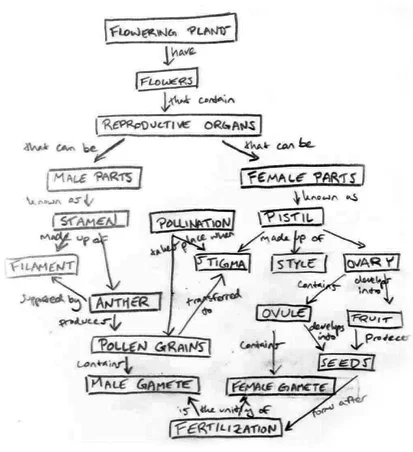 FLOWERING PLANTS
have
FLOWERS
that contain
REPRODUCTIVE ORGANS
that can be
that can be
MALE PARTS
FEMALE PARTS
known as
known as
STAMEN
POLLINATION
PISTIL
made up of
takes place when
made up of
FILAMENT
STIGMA
STYLE
OVARY
supported by
ANTHER
transferred to
contains
develops into
produces
OVULE
FRUIT
POLLEN GRAINS
contains
develops into
produce
contains
SEEDS
MALE GAMETE
FEMALE GAMETE
is the unity of
form after
FERTILIZATION